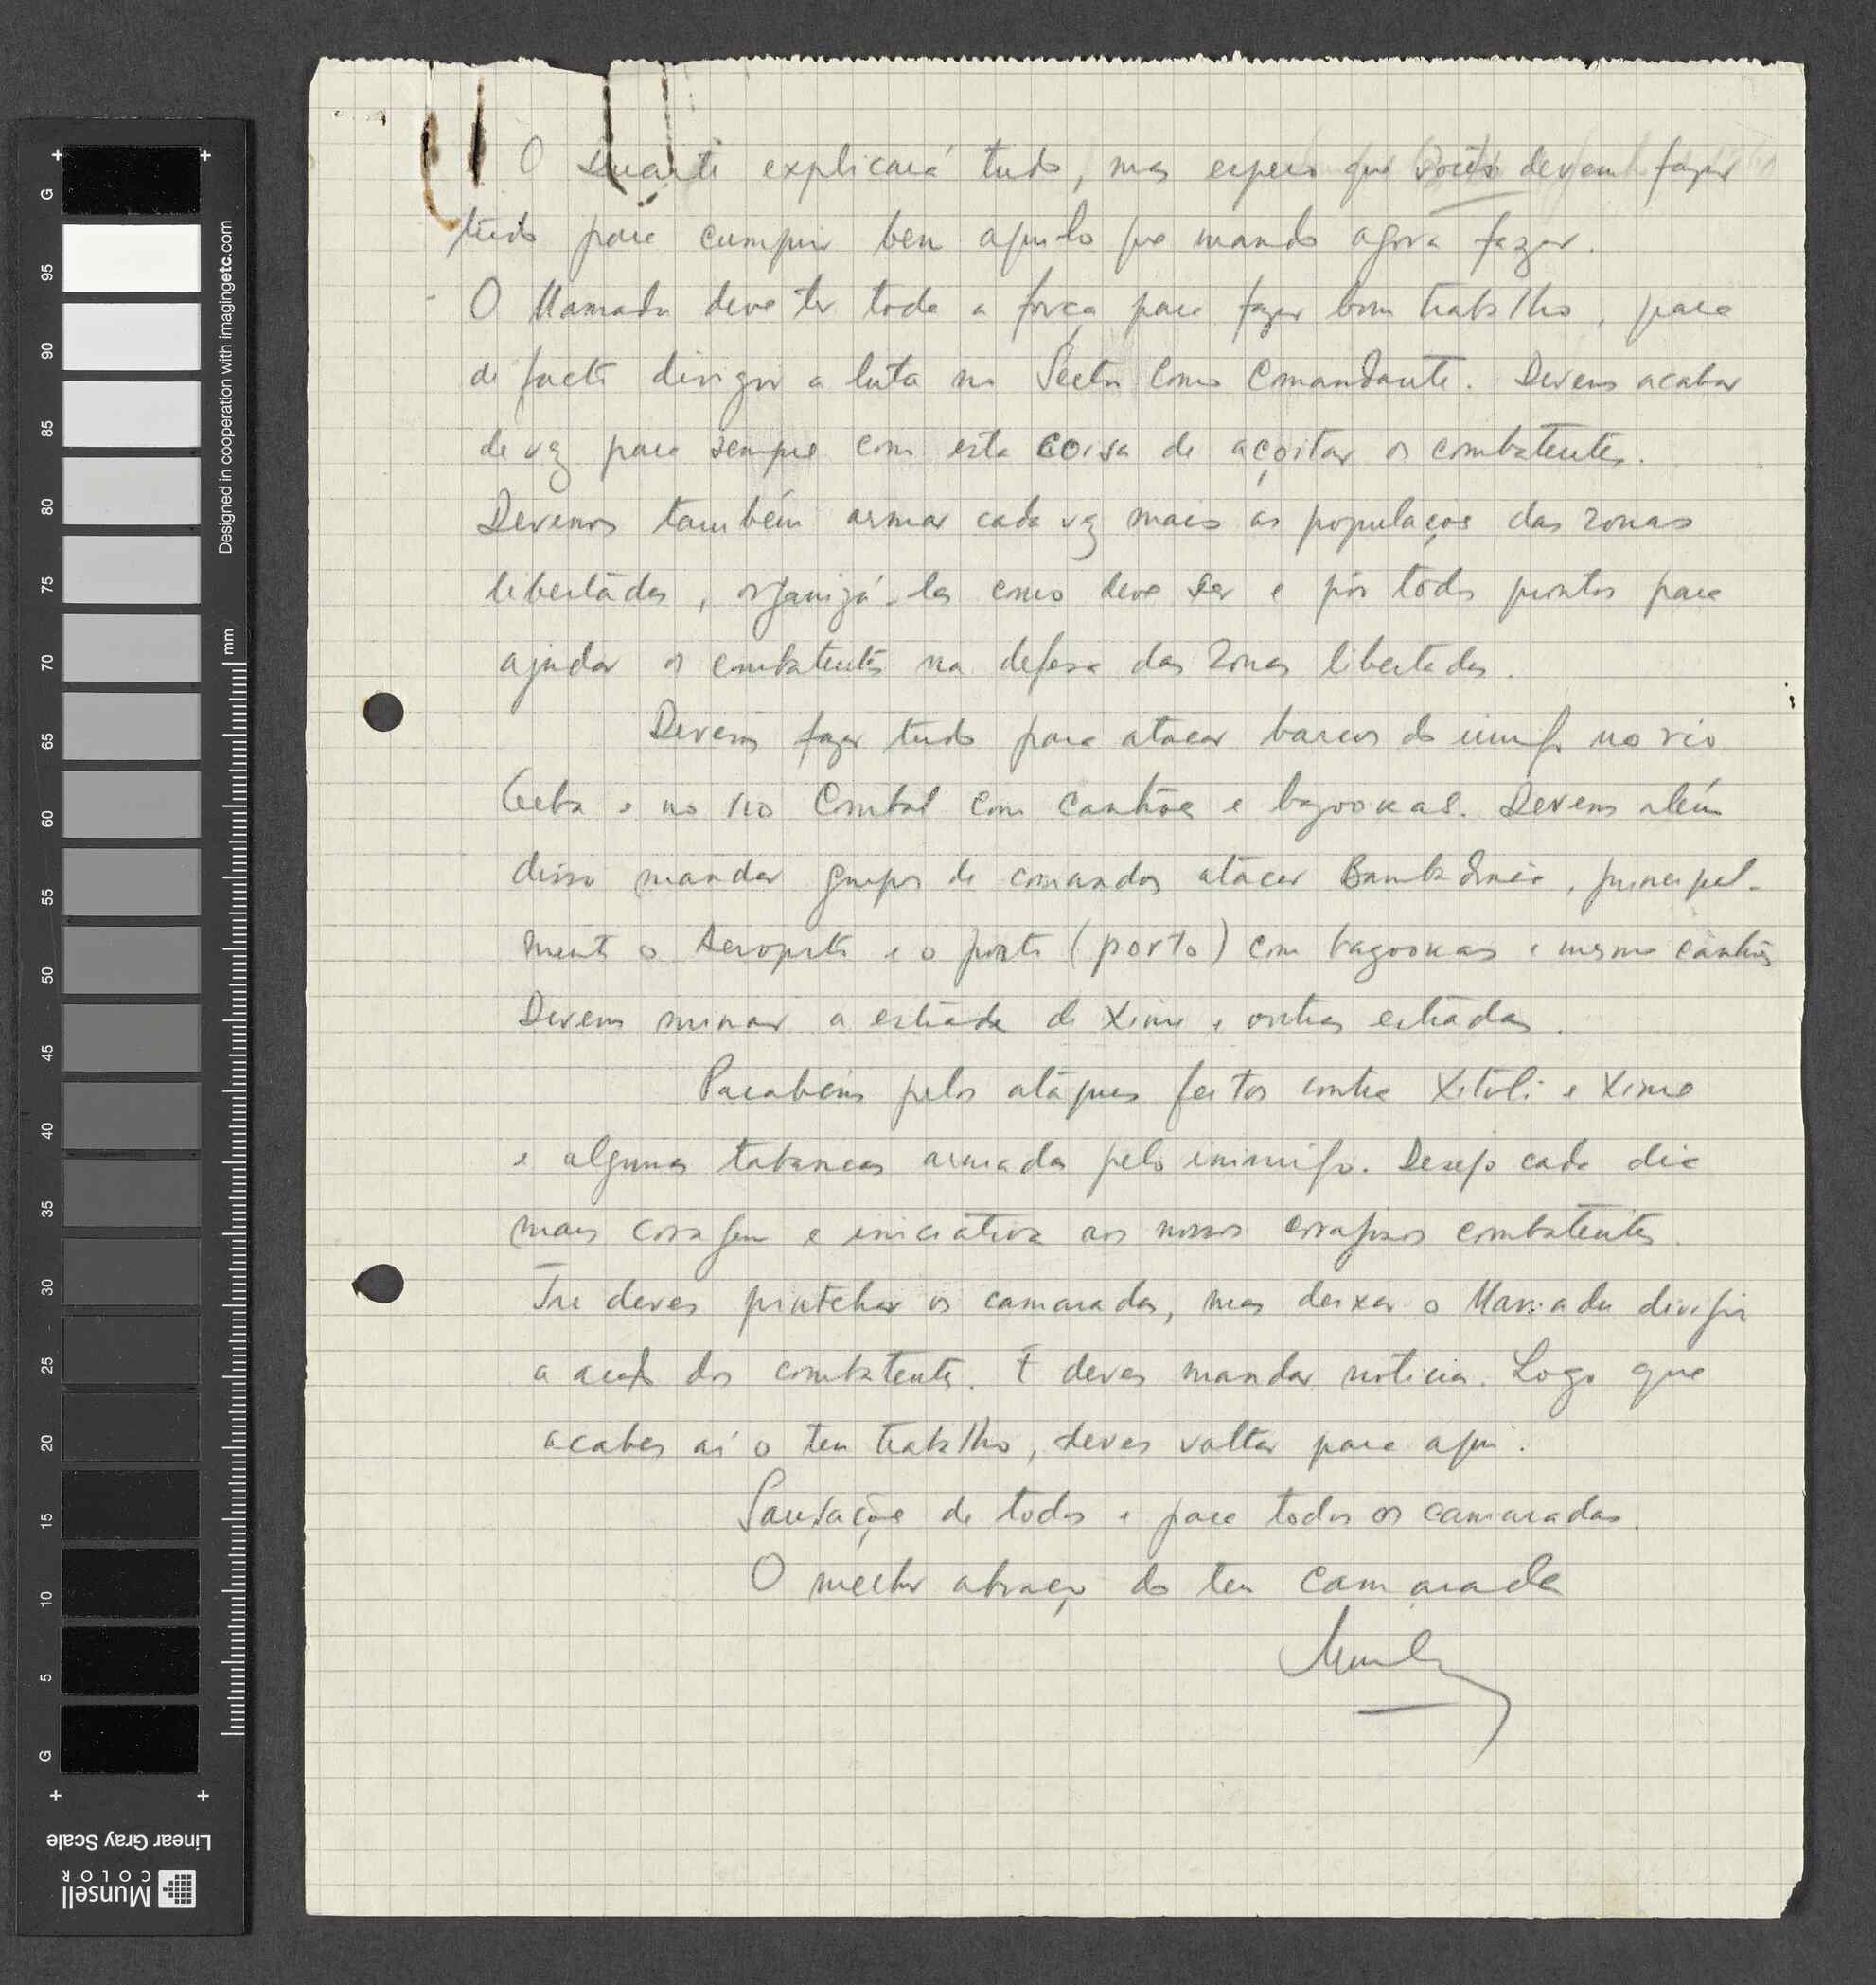 O Duarte explicará tudo, mas espero que vocês devem fazer
tudo para cumprir bem aquilo que mando agora fazer.
O Mamadu deve ter toda a força para fazer bom trabalho, para
de facto dirigir a luta no Sector como Comandante. Devem acabar
de vez para sempre com esta coisa de açoitar os combatentes.
Devemos também armar cada vez mais as populações das zonas
libertadas, organizá-las como deve ser e pôr todos prontos para
ajudar os combatentes na defesa das zonas libertadas.
Devem fazer tudo para atacar barcos do inimigo no rio
Geba e no rio Corubal com canhões e bazookas. Devem além
disso mandar grupos de comandos atacar Bambadinca, principal-
mente o Aeroporto e o porto (porto) com bazookas e mesmo canhões
Devem minar a estrada de Xime e outras estradas.
Parabéns pelos ataques feitos contra Xitoli e Xime
e algumas tabancas armadas pelo inimigo. Desejo cada dia
mais coragem e iniciativa aos nossos corajosos combatentes.
Tu deves controlar os camaradas, mas deixar o Mamadu dirigir
a acção dos combatentes. E deves mandar notícia. Logo que
acabes aí o teu trabalho, deves voltar para aqui.
Saudações de todos e para todos os camaradas.
O melhor abraço do teu camarada